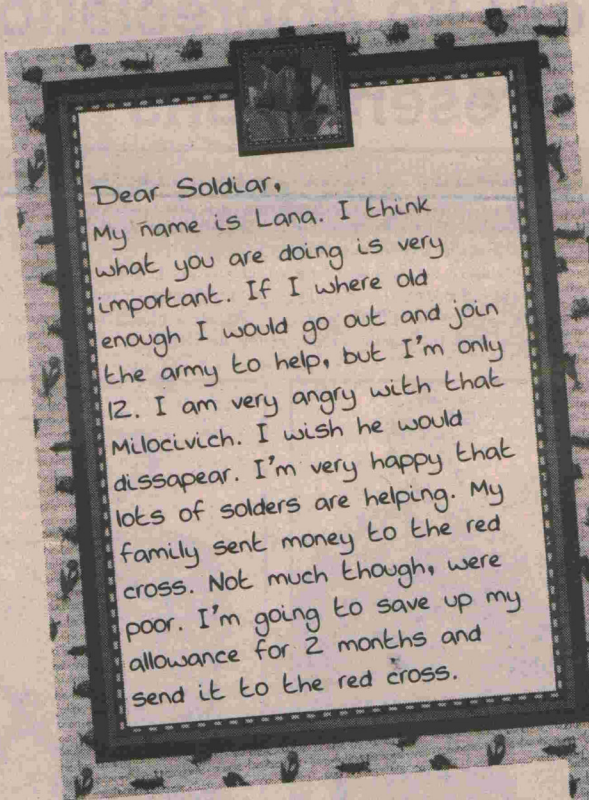 Dear Soldiar,
My name is Lana. I think
what you are doing is very
important. If I where old
enough I would go out and join
the army to help, but I'm only
12. I am very angry with that
Milocivich. I wish he would
dissapear. I'm very happy that
lots of solders are helping. My
family sent money to the red
cross. Not much though, were
poor. I'm going to save up my
allowance for 2 months and
send it to the red cross.